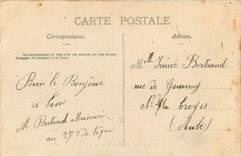 CARTE POSTALE
Correspondance.
Adresse.
Bien le Bonjour
a tous
M. Bertrand Musicien
au 27e de ligne
Mlle Irénée Bertrand
rue de Gournay
Troyes
(Aube)